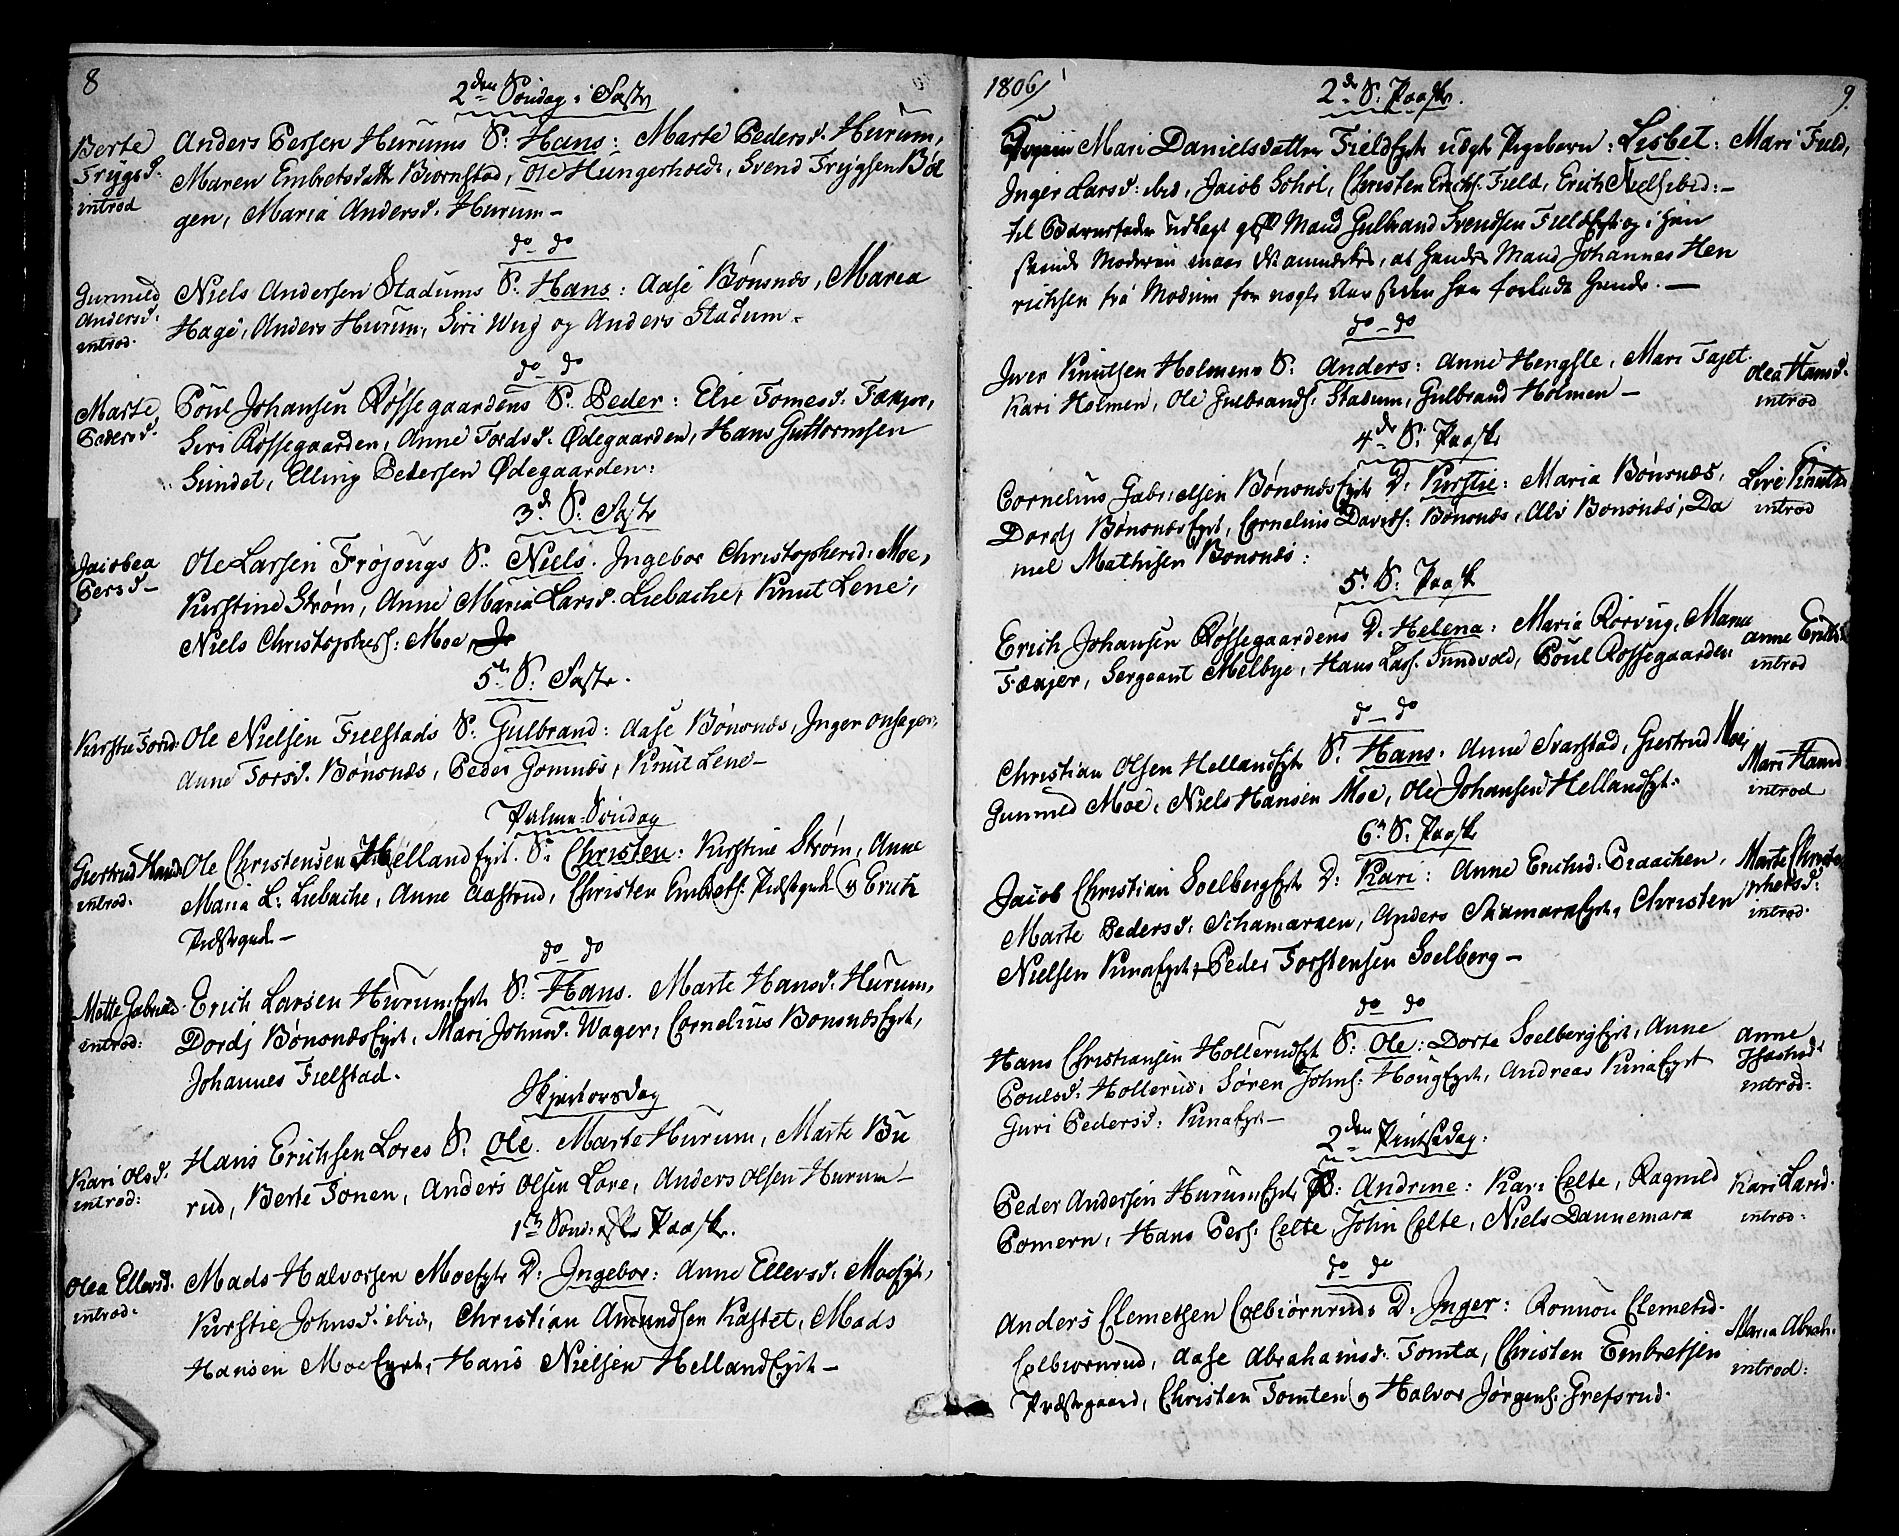 8
2den Søndag i Faste
Berte Trygsd. introd
Anders Persen Hurums S: Hans: Marte Pedersd. Hurum,
Maren Embretsdatt Biørnstad, Ole Hungerhold, Svend Trygsen Bøl
gen, Maria Andersd. Hurum –
do – do
Gunnild Andersd. introd.
Niels Andersen Stadums S. Hans: Aase Bønsnæs, Maria
Hage, Anders Hurum, Siri Wug og Anders Stadum –
do – do
Marte Pedersd.
Poul Johansen Røssegaardens S. Peder: Elie Tomesd. Fæxjer,
Siri Røssegaarden, Anne Tordsd. Ødegaarden, Hans Guttormsen
Sundet, Elling Pedersen Ødegaarden:
3d. S: Faste
Jaiobea Persd –
Ole Larsen Frøjougs S. Niels. Ingebor Christophersd: Moe,
Kirstine Strøm, Anne Maria Larsd. Liebache, Knut Lene,
Niels Christophers: Moe,
5t S. Faste.
Kirstie Tord:
Ole Nielsen Fielstads S. Gulbrand: Aase Bønsnæs, Inger Onsager,
Anne Torsd. Bønsnæs, Peder Gomnæs, Knut Lene –
Palme-Søndag
Giertrud Hansd introd.
Ole Christensen Hellandejet. S. Christen: Kirstine Strøm, Anne
Maria L: Liebache, Anne Aastrud, Christen Embrets: Præstgrd og Erich
Præstgrd. –
do – do
Mette Gabrield. introd:
Erich Larsen Hurumejet S: Hans. Marte Hansd. Hurum,
Dordj Bønsnæsejet, Mari Johnsd. Wager, Cornelius Bonsnæsejet,
Johannes Fielstad.
Skjertorsdag
Kari Olsd. introd:
Hans Erichsen Lores S. Ole. Marte Hurum, Marte Bu
rud, Berte Tonen, Anders Olsen Lore, Anders Olsen Hurum –
1ste Sønd: efter Paaske.
Olea Ellersd. introd:
Mads Halvorsen Moeejets D: Ingebor: Anne Ellersd. Moeejet,
Kirstie Johnsd. ibid, Christian Amundsen Kastet, Mads
Hansen Moeejet, Hans Nielsen Hellandejet –
1806
2d. S: Paaske.
9.
Mari Danielsdatter Fieldejet uægte Pigebarn: Lisbet: Mari Field,
Inger Larsd: ibid, Jacob Gohol, Christen Erichs. Field, Erich Niels ibid: –
til Barnefader udlagt gift Mand Gulbrand Svendsen Fieldejet og i hen
seende Moderen maae det anmerkes, at hendes Mand Johannes Hen
richsen fra Modum for nogle Aar siden har forladt hende. –
do – do
Iver Knutsen Holmens S. Anders: Anne Hengsle, Mari Fajet
Olea Hansd. introd
Kari Holmen, Ole Gulbrands. Stadum, Gulbrand Holmen –
4de S: Paaske
Cornelius Gabrielsen Bønsnæsejet D. Kirstie: Maria Bønsnæs,
Live Knuts introd
Dordj Bønsnæsejet, Cornelius Davids. Bønsnæs, Alv Bonsnæs, Da
niel Mathisen Bonsnæs:
5t. S: Paaske
Erich Johansen Røssegaardens D. Helena: Maria Rørvug, Maria
Anne Erichsd introd
Fæxjer, Sergeant Melbye, Hans Lars. Sundvold, Poul Røssegaarden
do – do
Christian Olsen Hellandejet S. Hans: Anne Svarstad, Giertrud Moe,
Mari Hansd introd
Gunnild Moe, Niels Hansen Moe, Ole Johansen Hellandejet.
6te S. Paaske
Jacob Christian Soelbergejet D: Kari: Anne Erichsd: Braachen,
Marte Christo phersd: introd.
Marte Pedersd. Schamaraen, Anders Skamaraejet, Christen
Nielsen Kinaejet, Peder Torstensen Soelberg –
do do
Hans Christiansen Hollerudejet S: Ole: Dorte Soelbergejet, Anne
Anne introd:
Poulsd. Hollerud, Søren Johns: Hougejet, Andreas Kinaejet
Guri Pedersd. Kinaejet –
2den Pintsedag:
Peder Andersen Hurumejet D: Andrine: Kari Celte, Ragnild
Kari Larsd. introd:
Pomern, Hans Pers: Celte, John Celte, Niels Dannemara
do do
Anders Clemetsen Colbiørnruds D. Inger: Ronnou Clemetsd.
Maria Abrah. introd:
Colbiørnrud, Aase Abrahamsd. Tomta, Christen Embretsen
Præstegaard, Christen Tomten og Halvor Jørgens. Grefsrud.